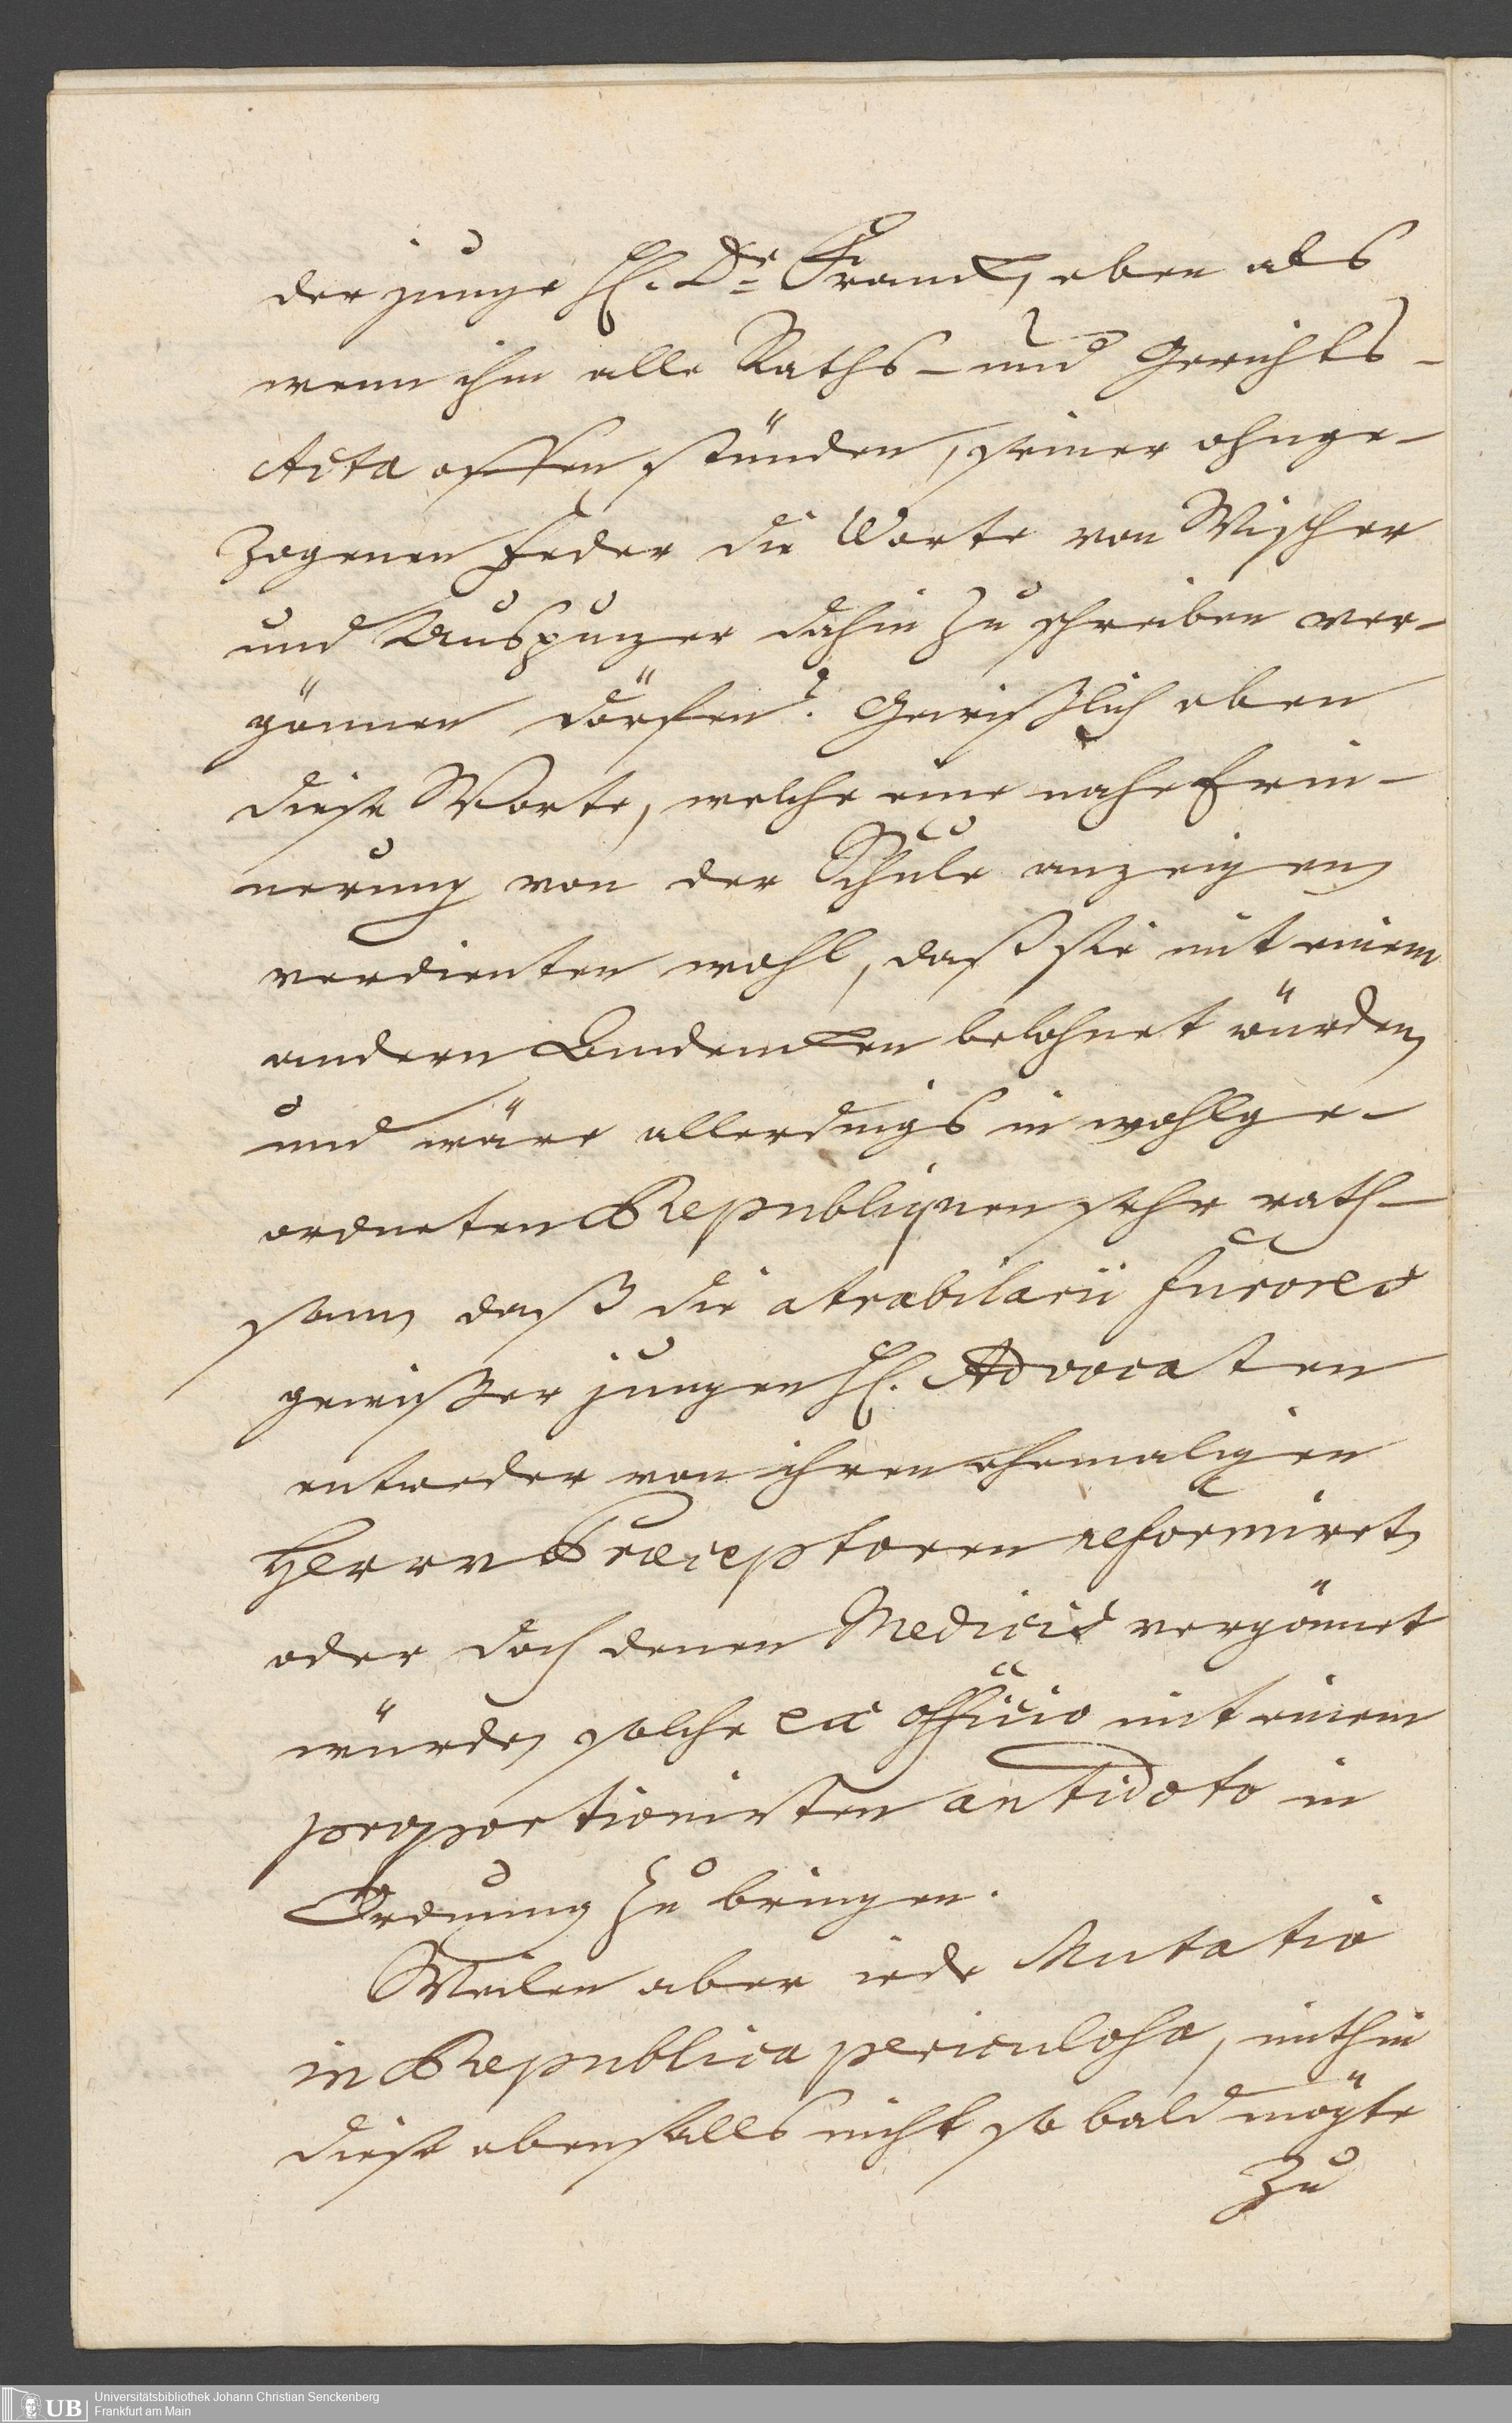 der junge H. Dr Franck, eben als
wenn ihm alle Raths- und Gerichts-
Acta offen stünden, seiner ohnge-
zogenen Feder die Worte von Wischer
und Ausputzer dahin zu schreiben ver-
gönnen dörfen? Gewißlich eben
diese Worte, welche eine nahe Erin-
nerung von der Schule anzeigen,
verdienten wohl, daß sie mit einem
andern belohnet würden,
und wäre allerdings in wohlge-
ordneten Republiquen sehr rath-
sam, daß die atrabilarii furores
gewißer jungen H. Advocaten
entweder von ihren ehemaligen
Herrn Præceptoren reformiret,
oder doch denen Medicis vergönnet
würde, solche ex officio mit einem
proportionirten antidoto in
Ordnung zu bringen.
Weilen aber iede Mutatio
in Republica periculosa, mithin
diese ebenfalls nicht so bald mögte
zu
Universitätsbibliothek Johann Christian Senckenberg
Frankfurt am Main
UB